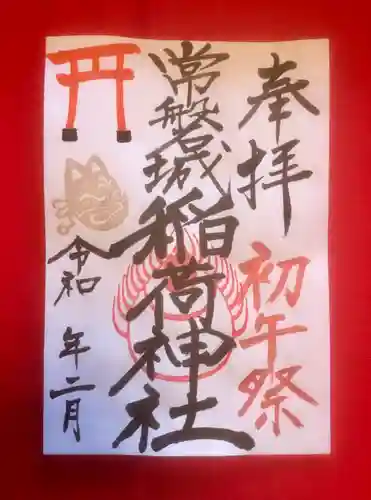 奉拝
初午祭
常磐城稲荷神社
令和 年二月